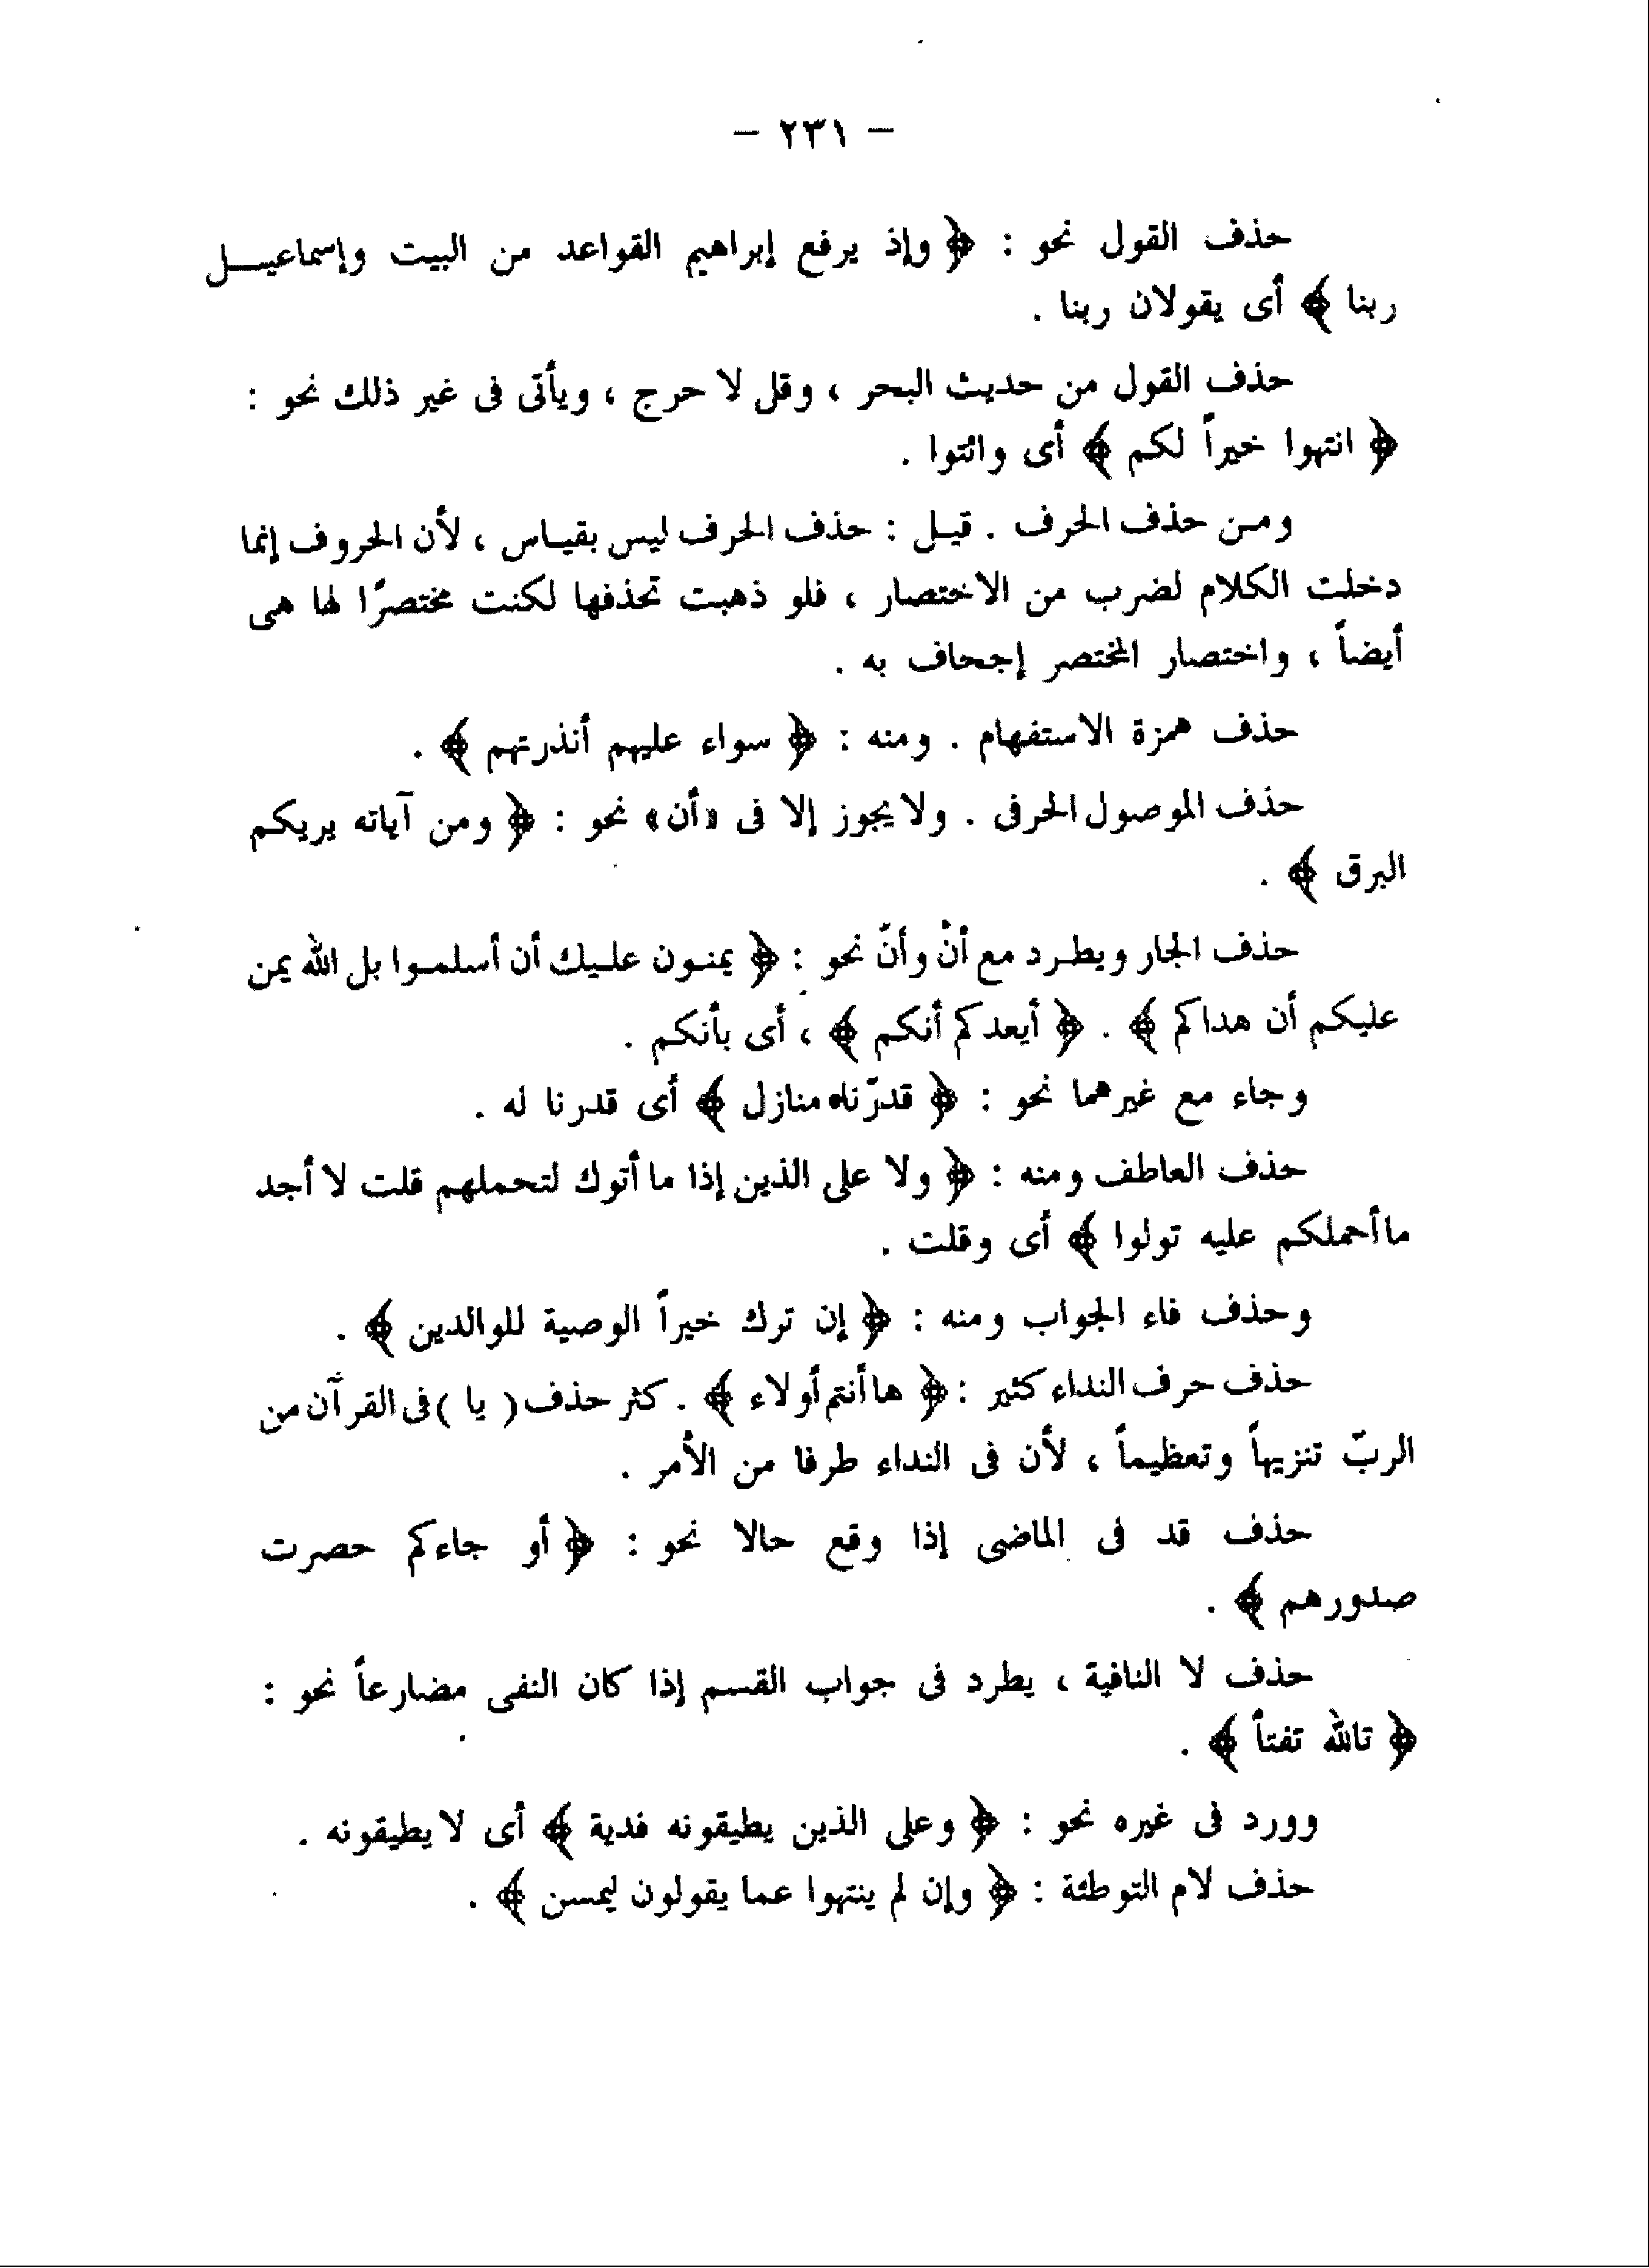 – ٢٣١ –
حذف القول نحو : ﴿ وإذ يرفع إبراهيم القواعد من البيت وإسماعيـــل
ربنا ﴾ أى يقولان ربنا .
حذف القول من حديث البحر ، وقل لا حرج ، ويأتى فى غير ذلك نحو :
﴿ انتهوا خيراً لكم ﴾ أى وائتوا .
ومـن حذف الحرف . قيـل : حذف الحرف ليس بقيـاس ، لأن الحروف إنما
دخلت الكلام لضرب من الاختصار ، فلو ذهبت تحذفها لكنت مختصرًا لها هى
أيضاً ، واختصار المختصر إجحاف به .
حذف همزة الاستفهام . ومنه : ﴿ سواء عليهم أنذرتهم ﴾ .
حذف الموصول الحرفى . ولا يجوز إلا فى «أن» نحو : ﴿ ومن آياته يريكم
البرق ﴾ .
حذف الجار ويطـرد مع أنْ وأنّ نحو : ﴿ يمنـون علـيك أن أسلمـوا بل الله يمن
عليكم أن هداكم ﴾ . ﴿ أيعدكم أنكم ﴾ ، أى بأنكم .
وجاء مع غيرهما نحو : ﴿ قدرّناه منازل ﴾ أى قدرنا له .
حذف العاطف ومنه : ﴿ ولا على الذين إذا ما أتوك لتحملهم قلت لا أجد
ما أحملكم عليه تولوا ﴾ أى وقلت .
وحذف فاء الجواب ومنه : ﴿ إن ترك خيراً الوصية للوالدين ﴾ .
حذف حرف النداء كثير : ﴿ ها أنتم أولاء ﴾ . كثر حذف ( يا ) فى القرآن من
الربّ تنزيهاً وتعظيماً ، لأن فى النداء طرفا من الأمر .
حذف قد فى الماضى إذا وقع حالا نحو : ﴿ أو جاءكم حصرت
صدورهم ﴾ .
حذف لا النافية ، يطرد فى جواب القسم إذا كان النفى مضارعاً نحو :
﴿ تالله تفتأ ﴾ .
وورد فى غيره نحو : ﴿ وعلى الذين يطيقونه فدية ﴾ أى لا يطيقونه .
حذف لام التوطئة : ﴿ وإن لم ينتهوا عما يقولون ليمسن ﴾ .